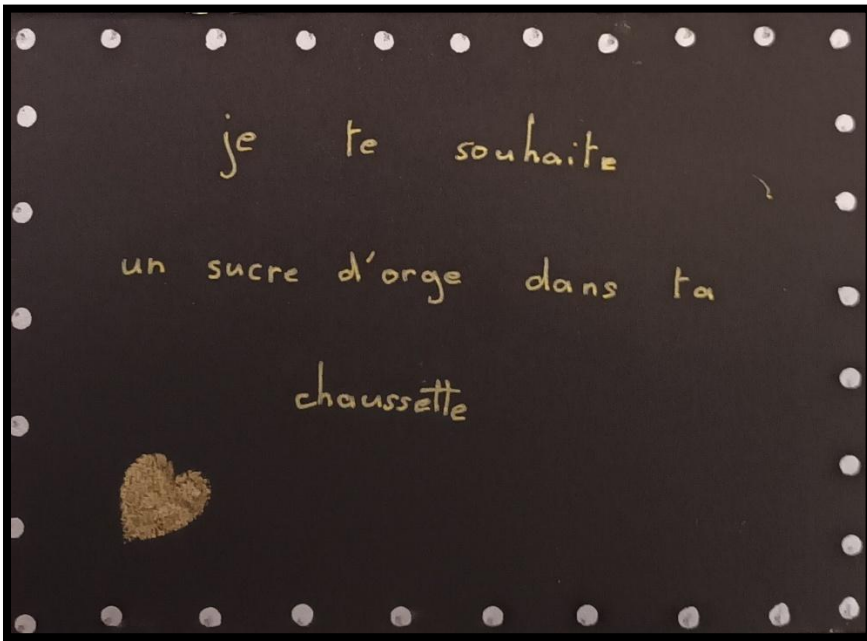 je te souhaite
un sucre d'orge dans ta
chaussette